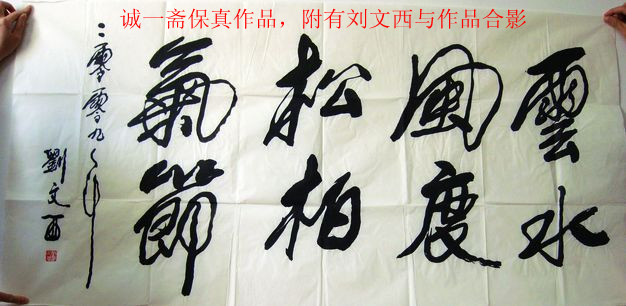 诚一斋保真作品，附有刘文西与作品合影
雲水
風度
松柏
氣節
二零零九年
劉文西